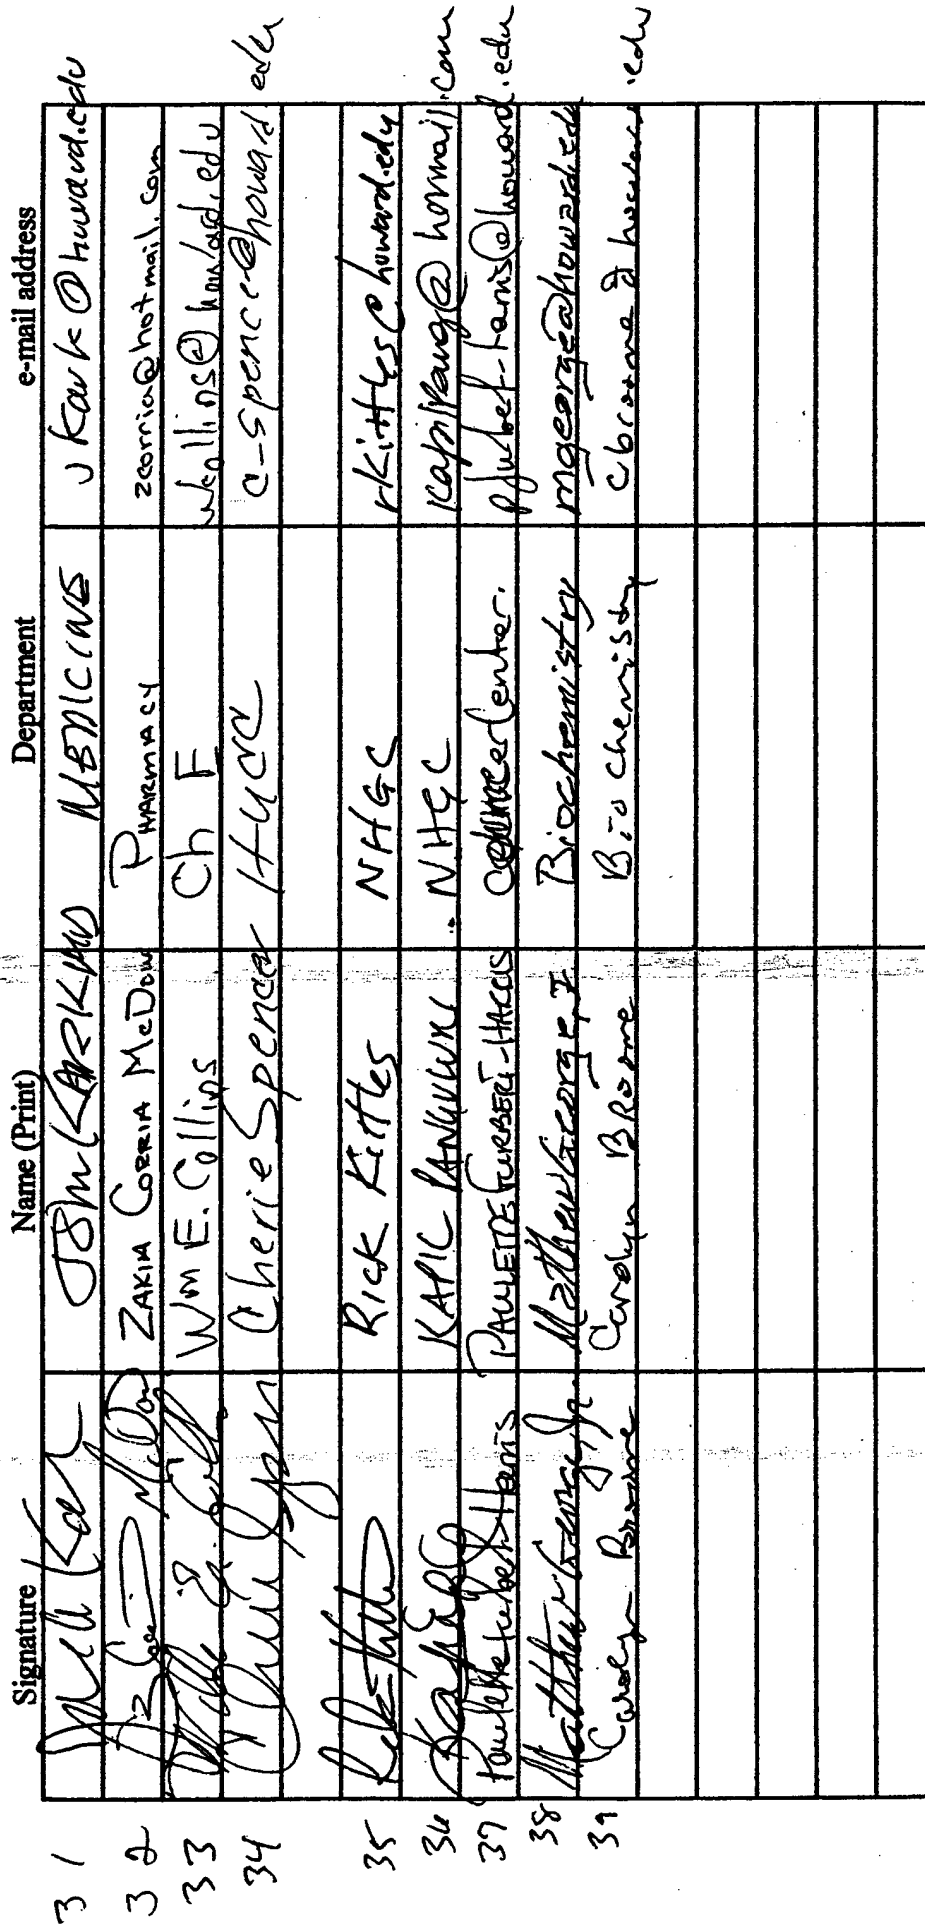 Signature Name (Print) Department e-mail address
31 John Kark MEDICINE jkark@howard.edu
32 ZAKIA CORRIA McDow PHARMACY zcorria@hotmail.com
33 Wm E. Collins Ch F wcollins@howard.edu
34 Cherie Spencer HUCC c-spencer@howard.edu
35 Rick Kittles NHGC rkittles@howard.edu
36 KAPIL NHGC
37 Paulette Furbert-Harris PAULETTE FURBERT-HARRIS Cancer Center. pfurbert-harris@howard.edu
38 Matthew George Jr. Matthew George, Jr Biochemistry mgeorge@howard.edu
39 Carolyn Broome Carolyn Broome Biochemistry cbroome@howard.edu